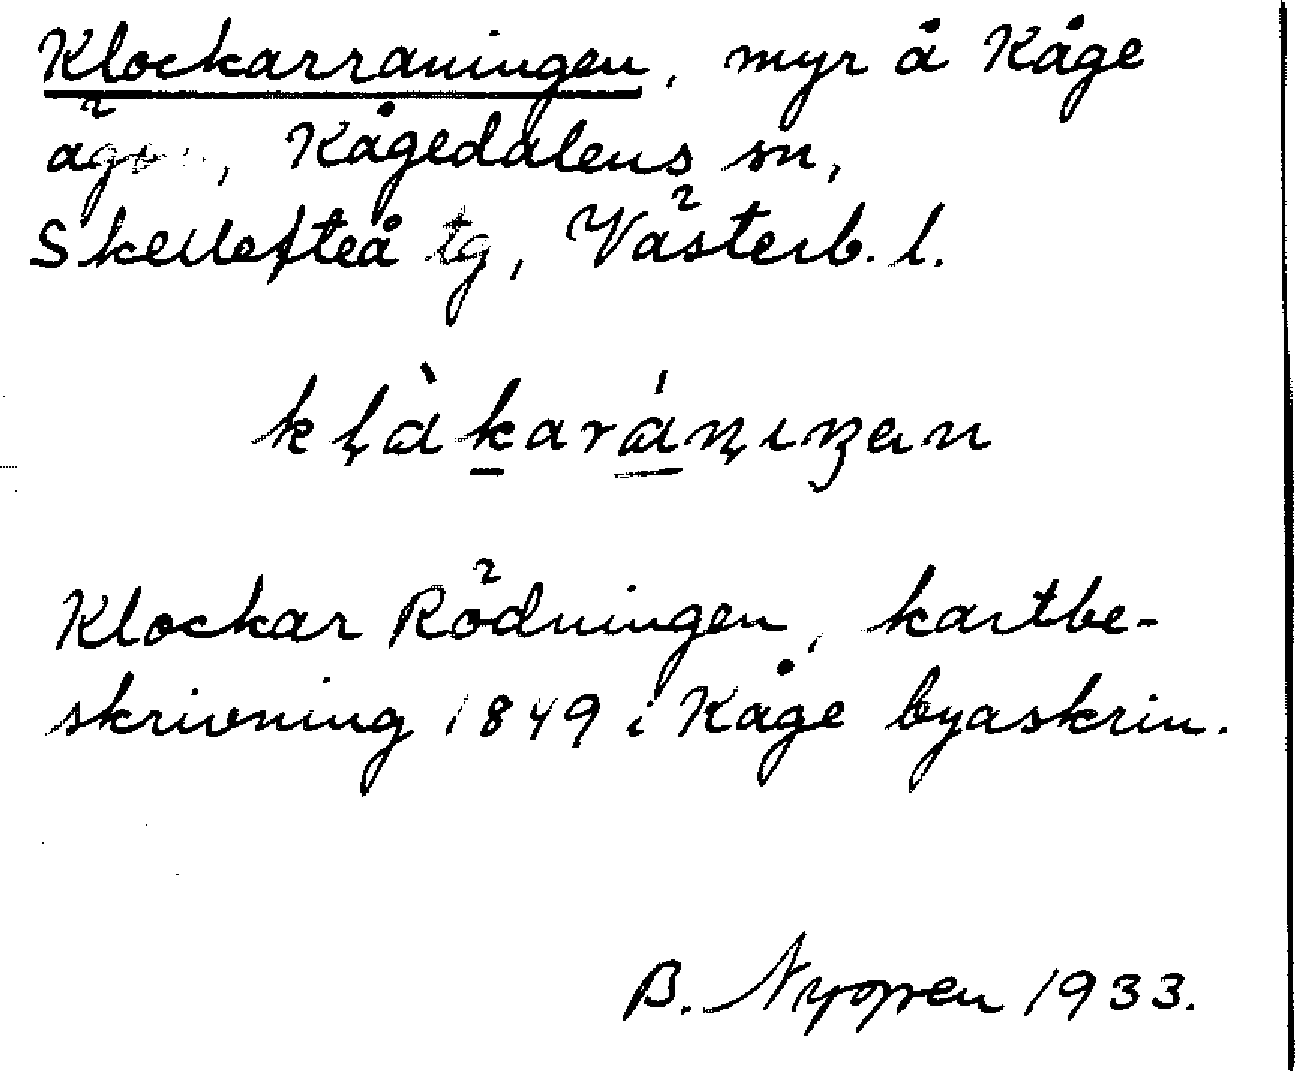 Klockarraningen, myr å Kåge
ägor, Kågedalens sn,
Skellefteå tg, Västerb. l.
Klockar Rödningen, kartbe-
skrivning 1849 i Kåge byaskrin.
B. Nyoren 1933.